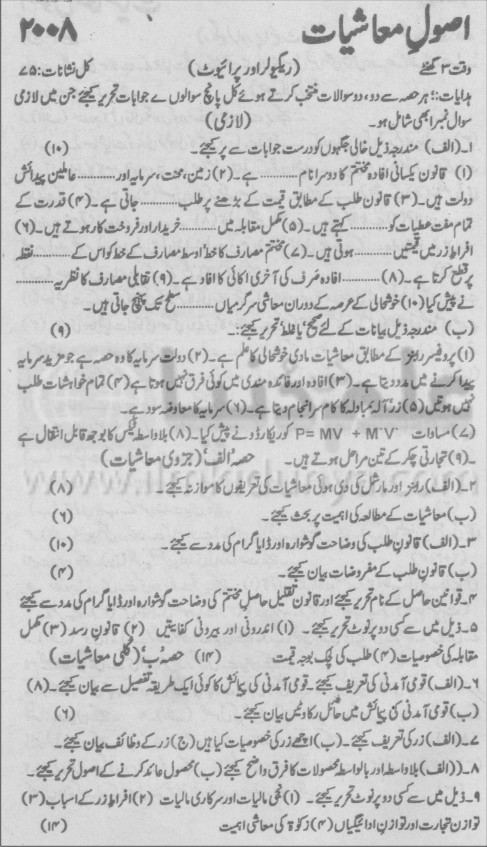 اصولِ معاشیات ۲۰۰۸
وقت ۳ گھنٹے (ریگولر اور پرائیوٹ) کل نشانات: ۷۵
ہدایات:: ہر حصہ سے دو، دو سوالات منتخب کرتے ہوئے کل پانچ سوالوں کے جوابات تحریر کیجئے جن میں لازمی
سوال نمبر ا بھی شامل ہو۔ (لازمی)
۱۔ (الف) مندرجہ ذیل خالی جگہوں کو درست جوابات سے پر کیجئے۔ (۱۰)
(۱) قانون یکسانی افادہ مختتم کا دوسرا نام ......... ہے۔ (۲) زمین، محنت، سرمایہ اور ......... عاملین پیدائش
دولت ہیں۔ (۳) قانون طلب کے مطابق قیمت کے بڑھنے پر طلب ......... جاتی ہے۔ (۴) قدرت کے
تمام مفت عطیات کو ......... کہتے ہیں۔ (۵) مکمل مقابلہ میں ......... خریدار اور فروخت کار ہوتے ہیں۔ (۶)
افراطِ زر میں قیمتیں ......... ہوتی ہیں۔ (۷) مختتم مصارف کا خط اوسط مصارف کے خط کو اس کے ......... نقطہ
پر قطع کرتا ہے۔ (۸) ......... افادہ صَرف کی آخری اکائی کا افادہ ہے۔ (۹) تقابلی مصارف کا نظریہ .........
نے پیش کیا (۱۰) خوشحالی کے عرصہ کے دوران معاشی سرگرمیاں ......... سطح تک پہنچ جاتی ہیں۔
(ب) مندرجہ ذیل بیانات کے لئے صحیح یا غلط تحریر کیجئے:۔ (۹)
(۱) پروفیسر روبنز کے مطابق معاشیات مادی خوشحالی کا علم ہے۔ (۲) دولت سرمایہ کا وہ حصہ ہے جو مزید سرمایہ
پیدا کرنے میں مدد دیتا ہے۔ (۳) افادہ اور فائدہ مندی میں کوئی فرق نہیں ہوتا ہے (۴) تمام خواشات طلب
نہیں ہوتیں (۵) زر آلۂ مبادلہ کا کام سر انجام دیتا ہے۔ (۶) سرمایہ کا معاوضہ سود ہے۔
(۷) مساوات P= MV + M'V' کو ریکارڈو نے پیش کیا۔ (۸) بلاواسطہ ٹیکس کا بوجھ قابل انتقال ہے
۔ (۹) تجارتی چکر کے تین مراحل ہوتے ہیں۔ حصہ الف، (جزوی معاشیات)
۲۔ (الف) روبنز اور مارشل کی دی ہوئی معاشیات کی تعریفوں کا موازنہ کیجئے۔ (۸)
(ب) معاشیات کے مطالعہ کی اہمیت پر بحث کیجئے۔ (۶)
۳۔ (الف) قانونِ طلب کی وضاحت گوشوارہ اور ڈایا گرام کی مدد سے کیجئے۔ (۱۰)
(ب) قانونِ طلب کے مفروضات بیان کیجئے۔ (۴)
۴۔ قوانین حاصل کے نام تحریر کیجئے اور قانون تقلیل حاصلِ مختتم کی وضاحت گوشوارہ اور ڈایا گرام کی مدد سے کیجئے
۵۔ ذیل میں سے کسی دو پر نوٹ تحریر کیجئے۔ (۱) اندرونی اور بیرونی کفایتیں (۲) قانونِ رسد (۳) مکمل
مقابلہ کی خصوصیات (۴) طلب کی لچک بوجہ قیمت (۱۴) حصہ ’ب‘ (کلّی معاشیات)
۶۔ (الف) قومی آمدنی کی تعریف کیجئے۔ قومی آمدنی کی پیمائش کا کوئی ایک طریقہ تفصیل سے بیان کیجئے۔ (۸)
(ب) قومی آمدنی کی پیمائش میں حائل رکاوٹیں بیان کیجئے۔ (۶)
۷۔ (الف) زر کی تعریف کیجئے۔ (ب) اچھے زر کی خصوصیات کیا ہیں (ج) زر کے وظائف بیان کیجئے۔
۸۔ (الف) بلاواسطہ اور بالواسطہ محصولات کا فرق واضح کیجئے (ب) محصول عائد کرنے کے اصول تحریر کیجئے۔
۹۔ ذیل میں سے کسی دو پر نوٹ تحریر کیجئے۔ (۱) نجی مالیات اور سرکاری مالیات (۲) افراطِ زر کے اسباب (۳)
توازنِ تجارت اور توازنِ ادائیگیاں (۴) زکوٰۃ کی معاشی اہمیت (۱۴)